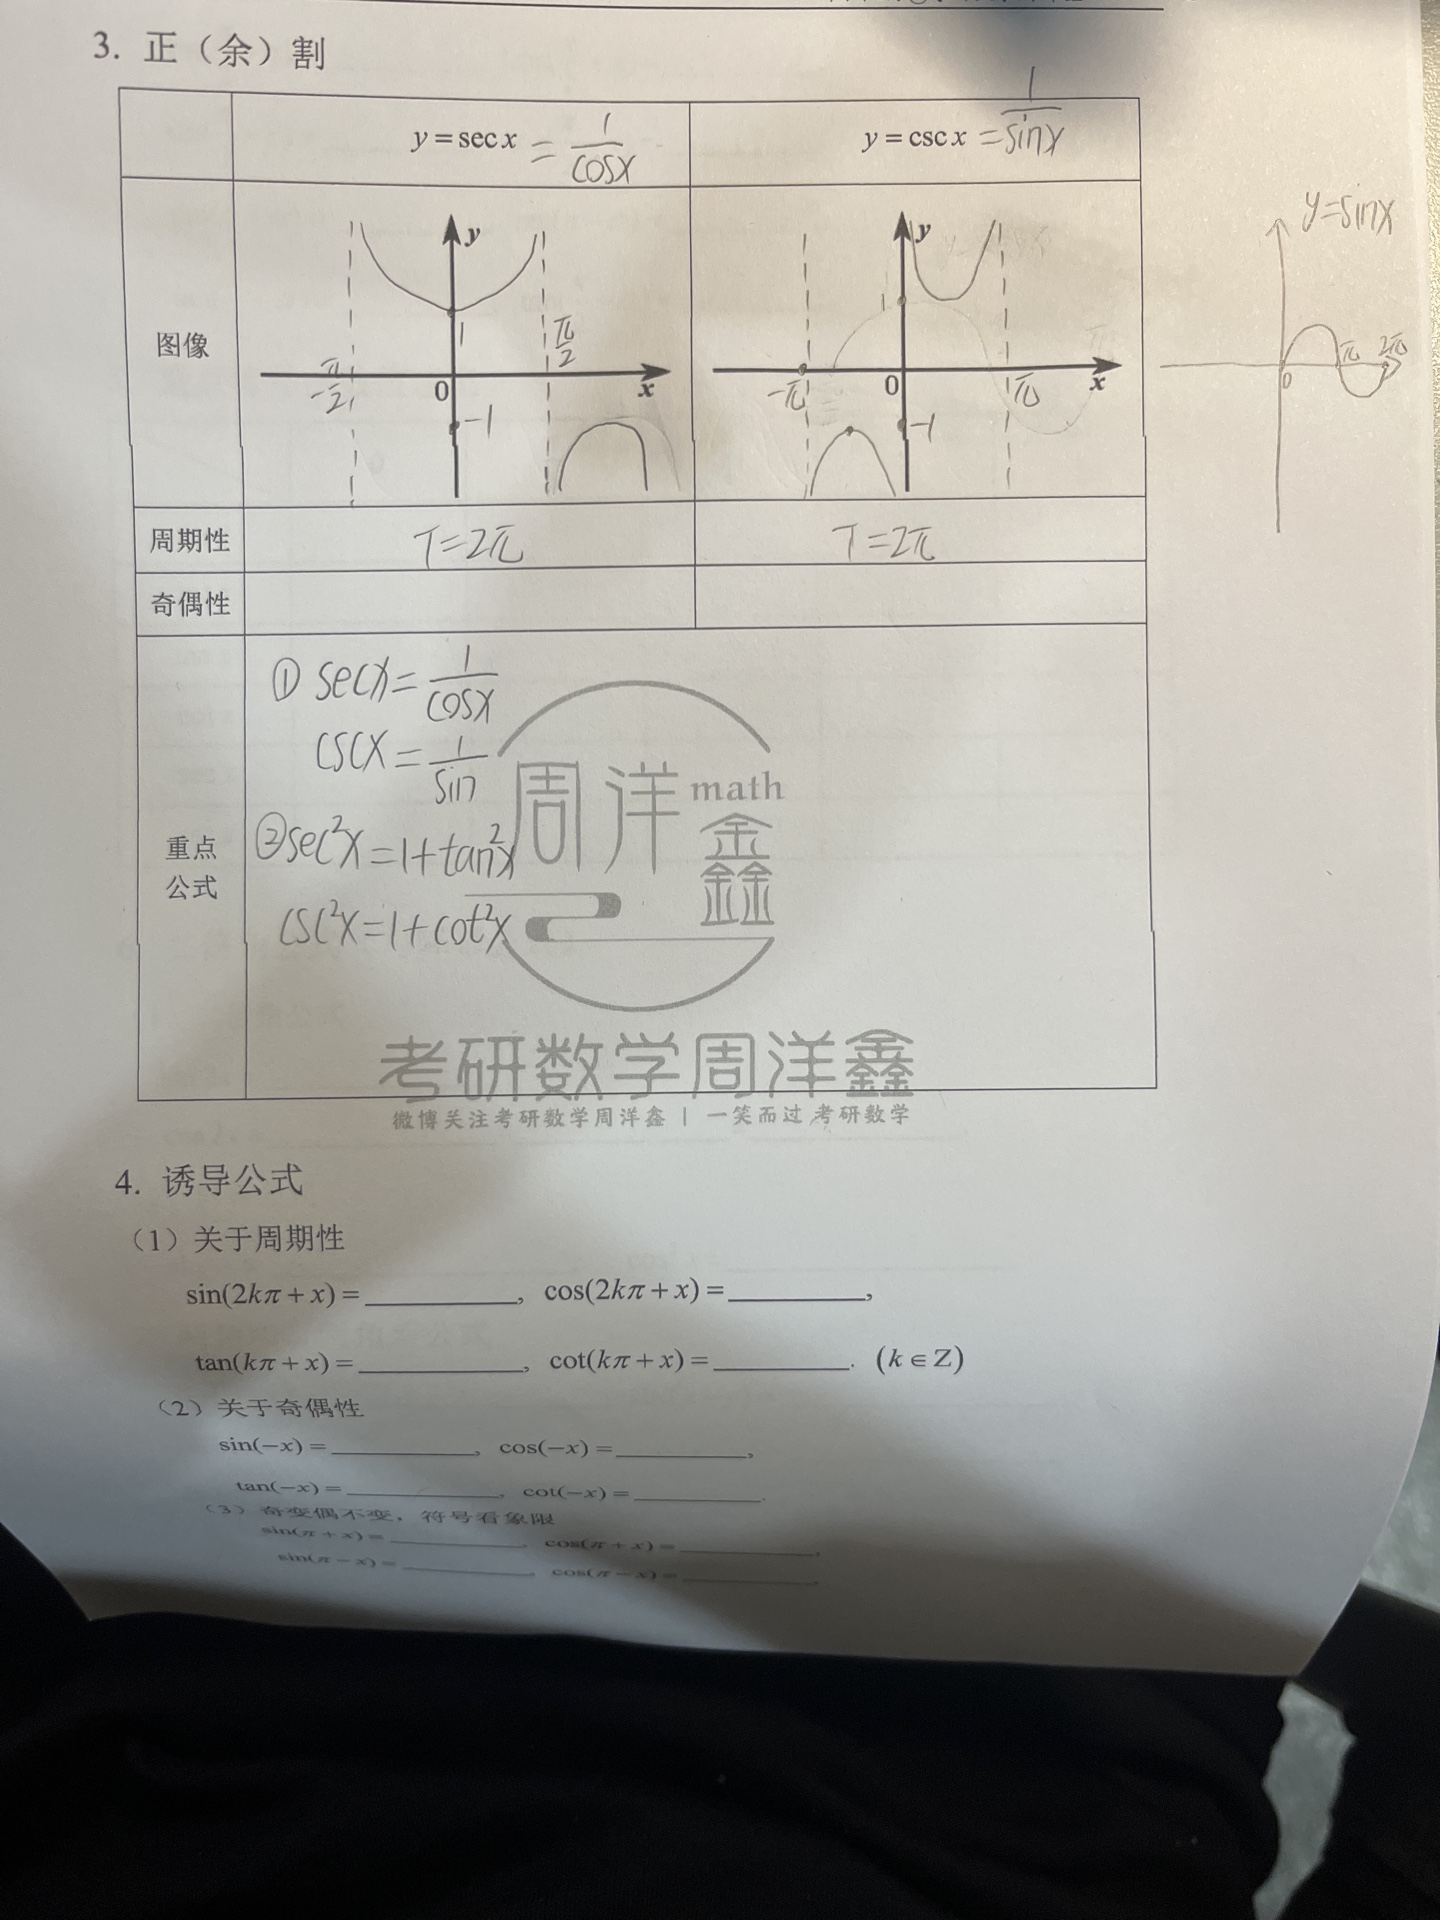 3. 正（余）割
y = sec x = 1/cosx
y = csc x = 1/sinx
图像
y
1
π/2
-π/2
0
x
-1
y
1
-π
0
π
x
-1
y=sinx
0
π
2π
周期性
T=2π
T=2π
奇偶性
重点
公式
① secx = 1/cosx
cscx = 1/sin
② sec²x = 1+tan²x
csc²x = 1+cot²x
周洋鑫 math
考研数学周洋鑫
微博关注考研数学周洋鑫 | 一笑而过 考研数学
4. 诱导公式
（1）关于周期性
sin(2kπ + x) = ______, cos(2kπ + x) = ______,
tan(kπ + x) = ______, cot(kπ + x) = ______. (k ∈ Z)
（2）关于奇偶性
sin(−x) = ______, cos(−x) = ______,
tan(−x) = ______, cot(−x) = ______.
（3）奇变偶不变，符号看象限
sin(π + x) = ______, cos(π + x) = ______,
sin(π − x) = ______, cos(π − x) = ______,